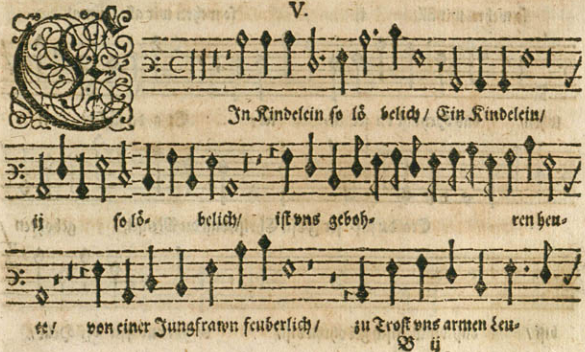 V.
EIn Kindelein so lö belich/ Ein Kindelein/
ij so lö- belich/ ist vns geboh- ren heu-
te/ von einer Jungfrawn seuberlich/ zu Trost vns armen Leu-
B ij